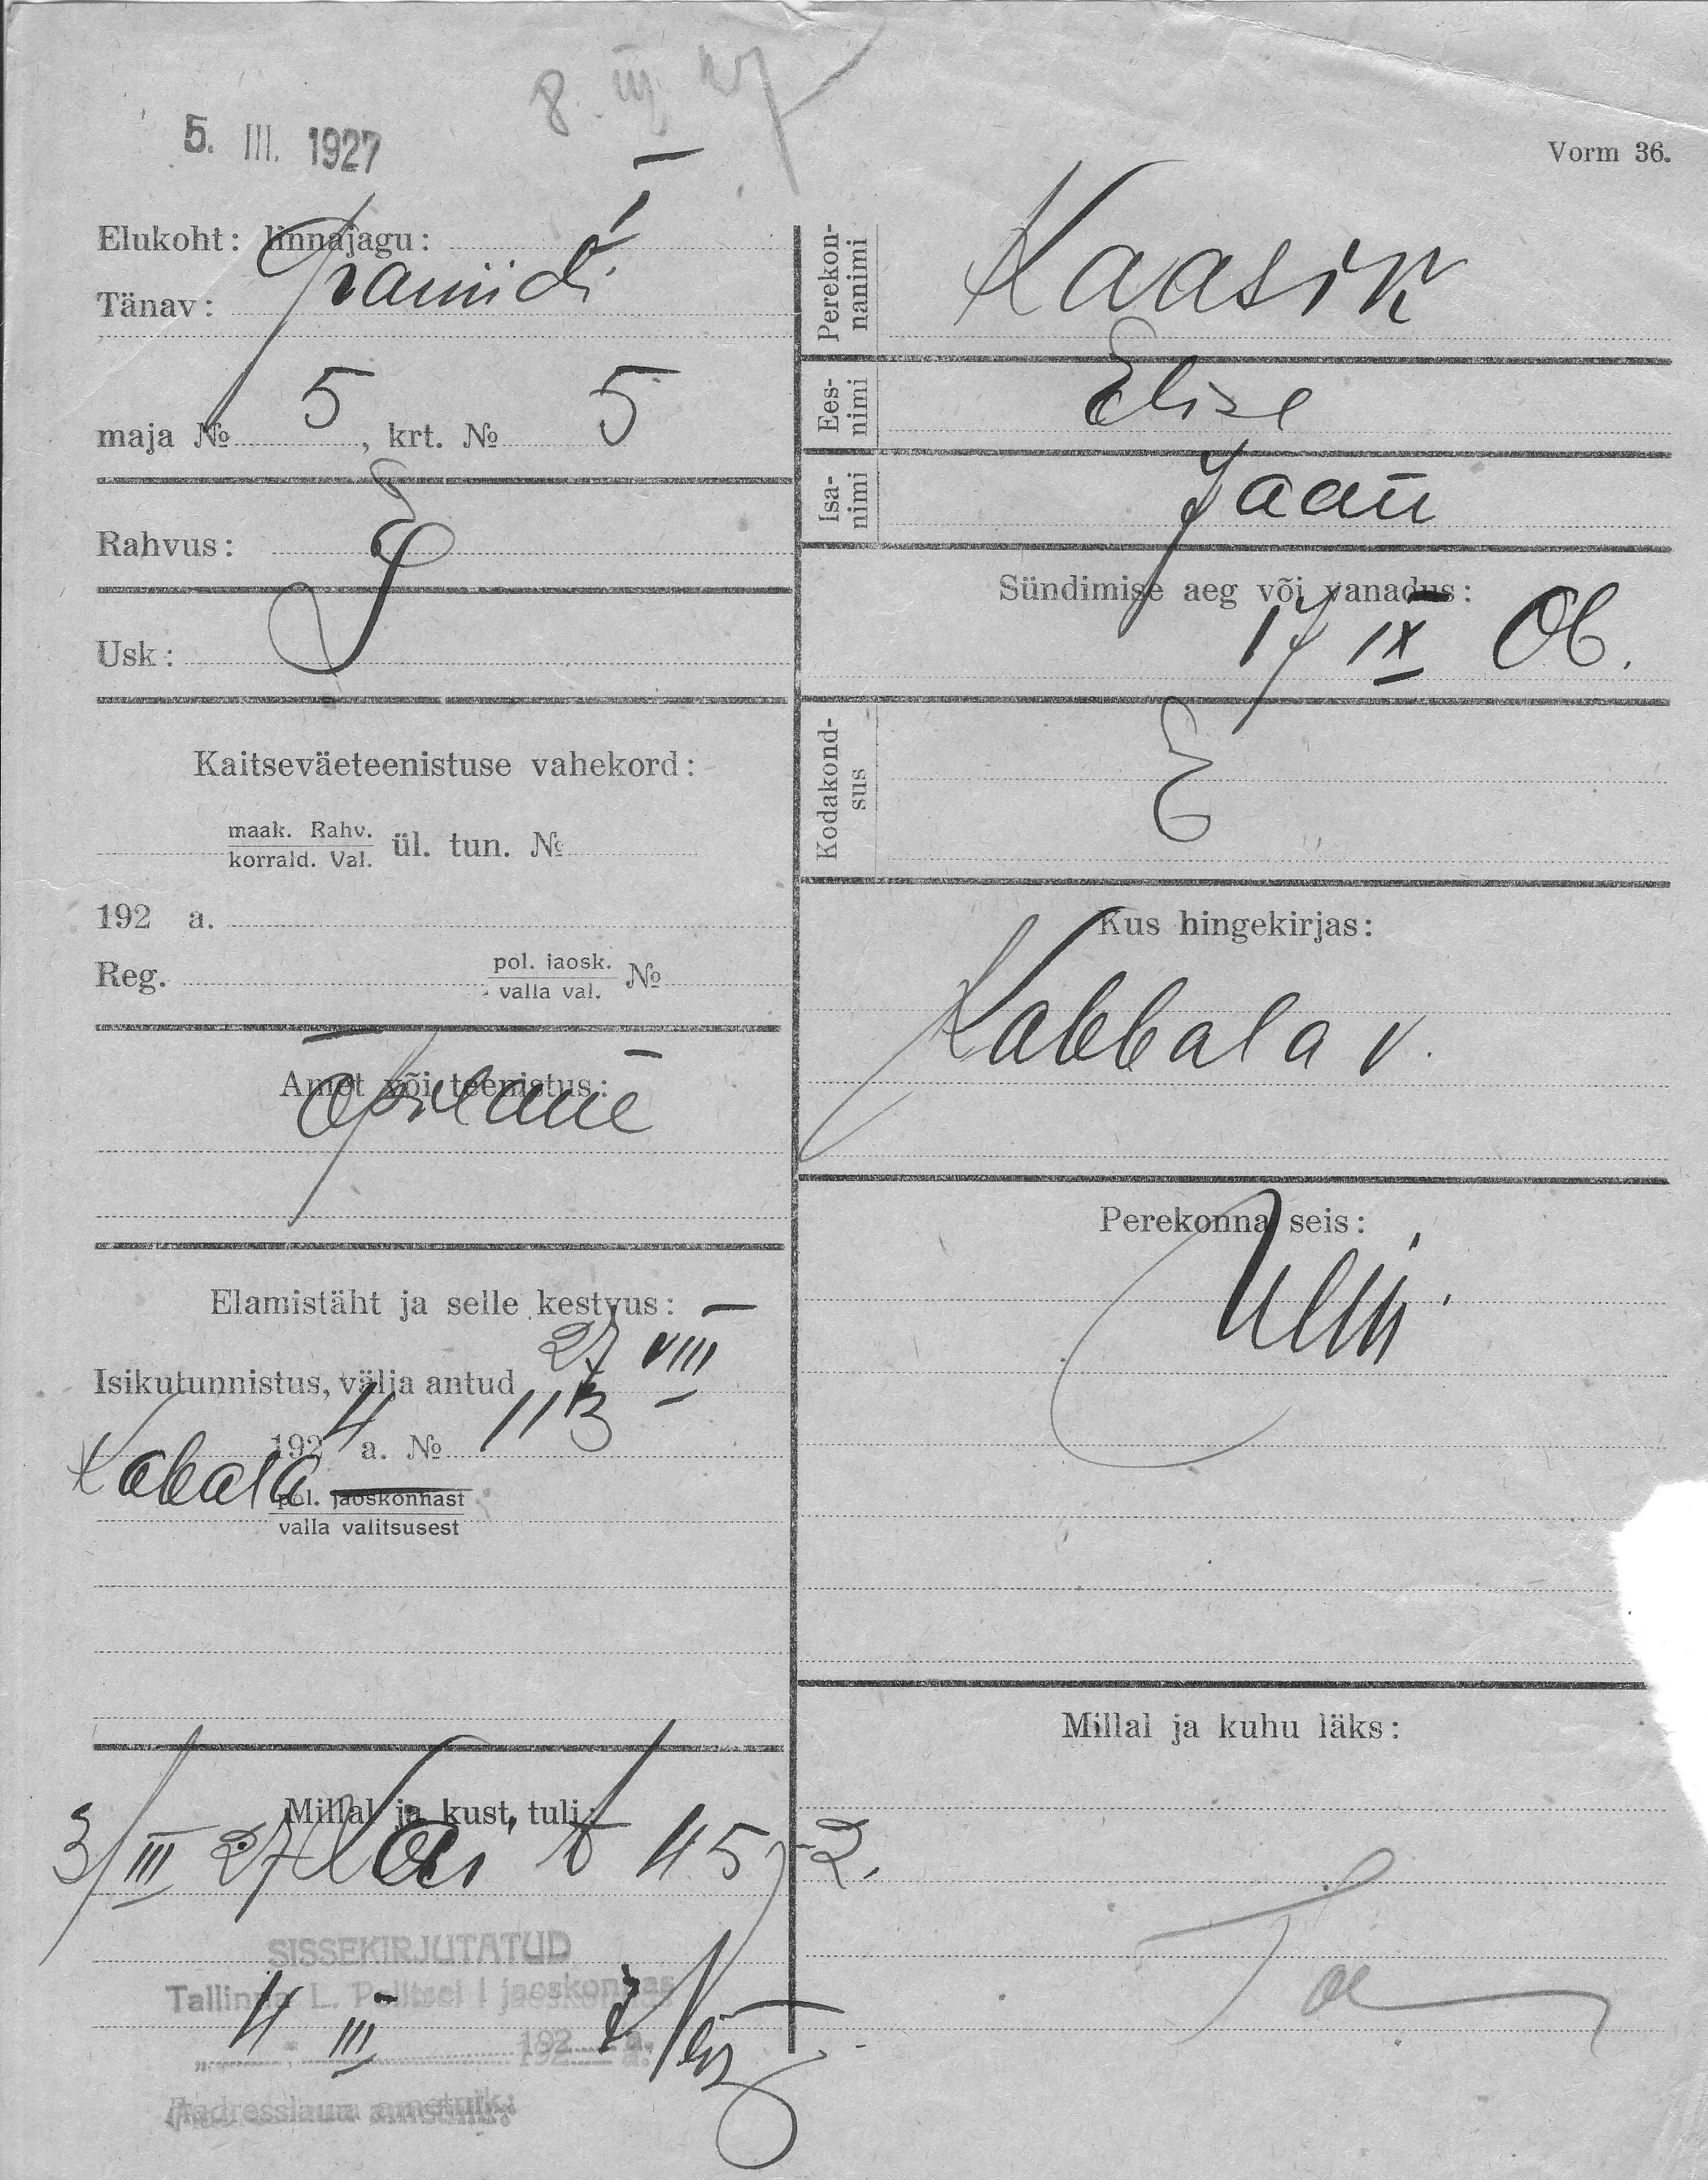 8. III 27
5. III. 1927
Vorm 36.
Elukoht: linnajagu: I
Tänav:
maja № 5, krt. № 5
Rahvus: E
Usk:
Kaitseväeteenistuse vahekord:
maak. Rahv.
korrald. Val. ül. tun. №
192 a.
Reg. pol. jaosk. №
valla val.
Amet või teenistus:
õpilane
Elamistäht ja selle kestvus: —
Isikutunnistus, välja antud 27 VIII
1924 a. № 113
Kabala pol. jaoskonnast
valla valitsusest
Millal ja kust tuli:
3/III 27 45-2.
SISSEKIRJUTATUD
Tallinna L. Politsei I jaoskonnas
4 III 192 7 a.
Aadresslaua ametnik:
Perekonnanimi Kaasik
Eesnimi Elise
Isanimi Jaan
Sündimise aeg või vanadus:
17 IX 06.
Kodakondsus E
Kus hingekirjas:
Kabbala v.
Perekonna seis:
Millal ja kuhu läks: